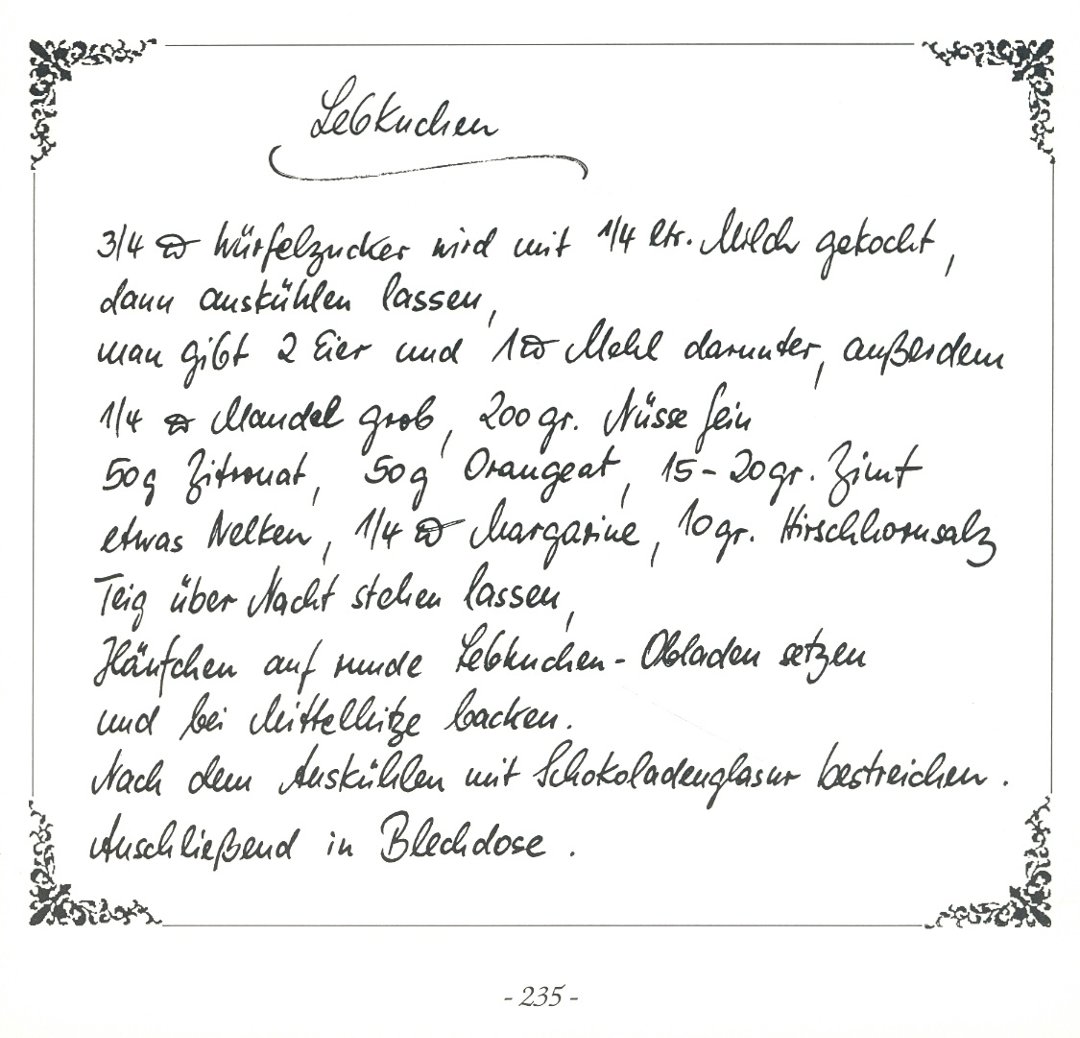 Lebkuchen
3/4 ℔ Würfelzucker wird mit 1/4 ltr. Milch gekocht,
dann auskühlen lassen,
man gibt 2 Eier und 1 ℔ Mehl darunter, außerdem
1/4 ℔ Mandel grob, 200 gr. Nüsse fein
50g Zitronat, 50g Orangeat, 15-20gr. Zimt
etwas Nelken, 1/4 ℔ Margarine, 10 gr. Hirschhornsalz
Teig über Nacht stehen lassen,
Häufchen auf runde Lebkuchen-Obladen setzen
und bei Mittelhitze backen.
Nach dem Auskühlen mit Schokoladenglasur bestreichen.
Anschließend in Blechdose.
- 235 -